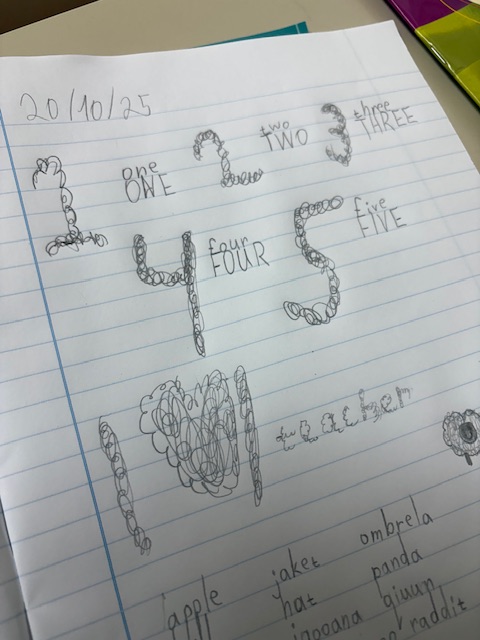 20/10/25
1 one 2 two 3 three
ONE TWO THREE
4 four 5 five
FOUR FIVE
I teacher
apple jaket ombrela
hat panda
raddit